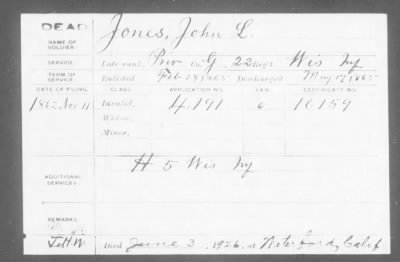 DEAD
NAME OF SOLDIER
Jones, John L.
SERVICE
Late rank, Priv Co. G, 22 Reg't Wis Inf
TERM OF SERVICE
Enlisted Feb 28 1865 Discharged May 17 1865
DATE OF FILING CLASS. APPLICATION NO. LAW CERTIFICATE NO.
1862 Nov 11 Invalid, 4,191 16159
Widow,
Minor,
ADDITIONAL SERVICES
H 5 Wis Inf
REMARKS
Died June 3, 1926, at Waterford, Calif